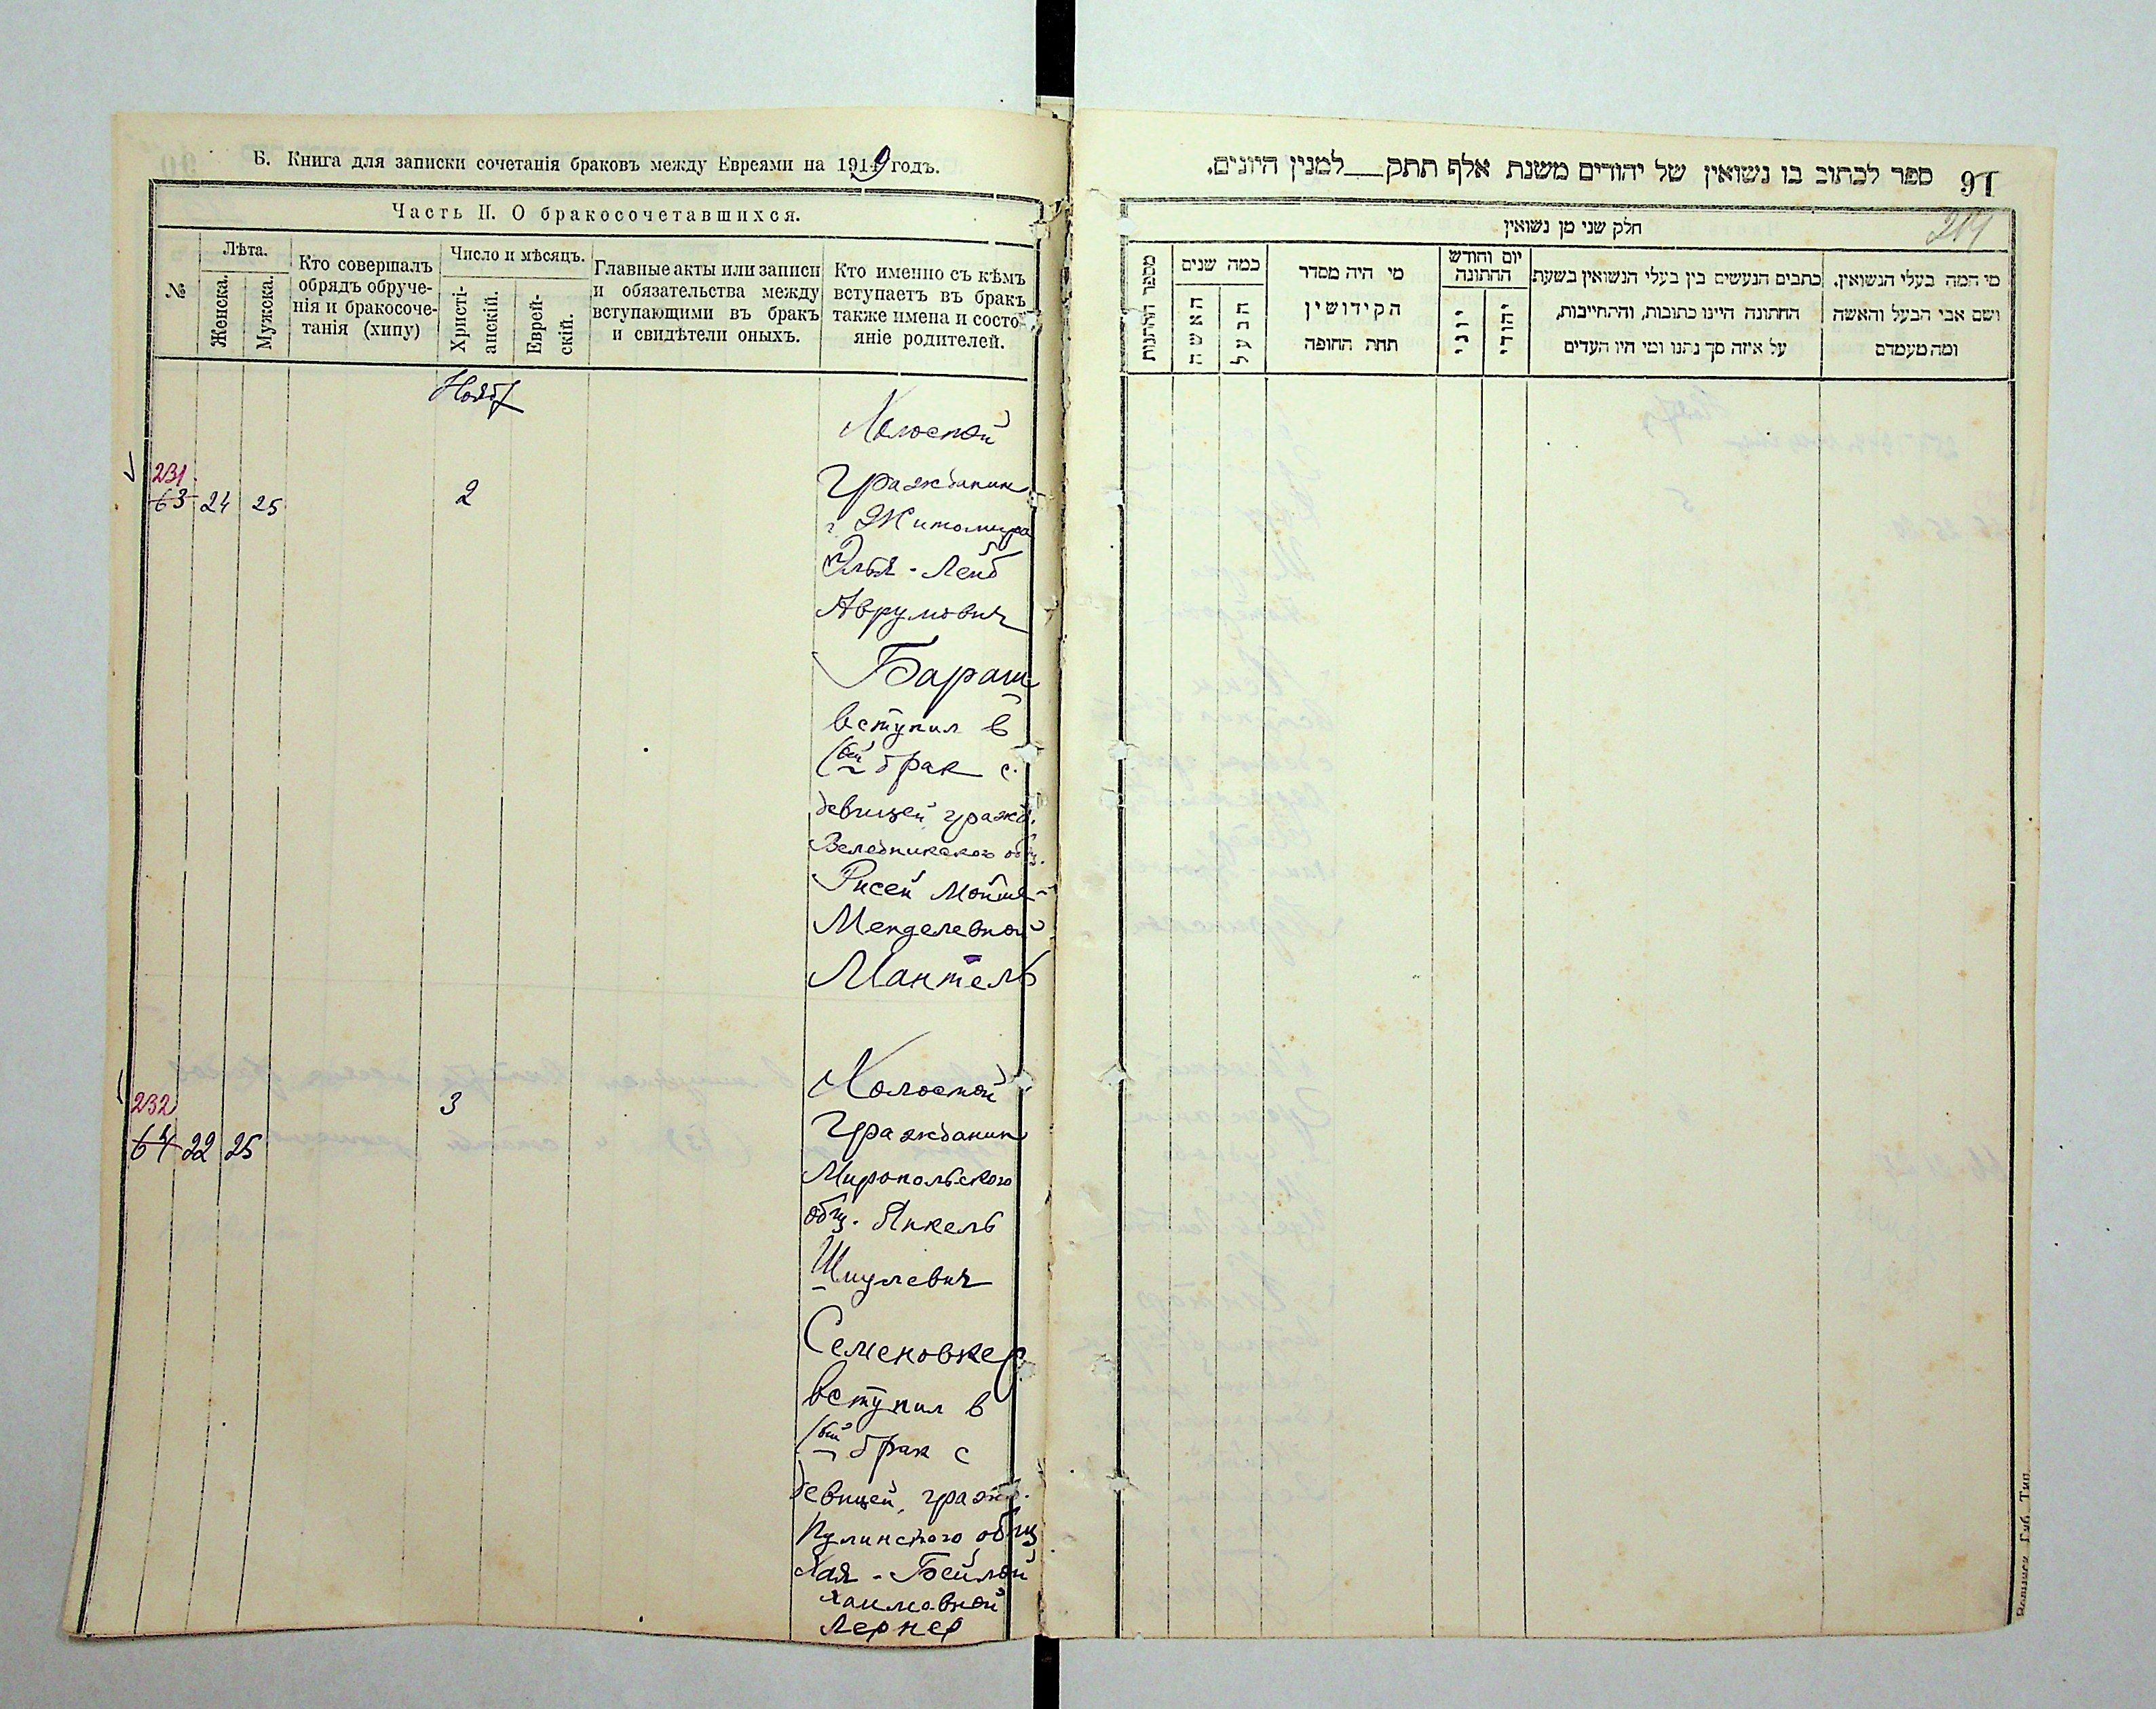 Б. Книга для записки сочетанія браковъ между Евреями на 1919 годъ.
Часть II. О бракосочетавшихся.
№
Лѣта.
Женска.
Мужска.
Кто совершалъ
обрядъ обруче-
нія и бракосоче-
танія (хипу)
Число и мѣсяцъ.
Христі-
анскій.
Еврей-
скій.
Главные акты или записи
и обязательства между
вступающими въ бракъ
и свидѣтели оныхъ.
Кто именно съ кѣмъ
вступаетъ въ бракъ
также имена и состо-
яніе родителей.
Нояб
231
63 24 25
2
Холостой
Гражданин
г. Житомира
Элья - Лейб
Аврумович
Бараш
вступил в
1ый брак с
девицей гражд.
Веледникского общ.
Рисей Мойше-
Менделевной
Мантель
232
64 22 25
3
Холостой
Гражданин
Миропольского
общ. Янкель
Шмулевич
Семеновкер
вступил в
1ый брак с
девицей, гражд.
Пулинского общ
Хая - Бейлой
Хаимовной
Лернер
ספר לכתוב בו נשואין של יהודים משנת אלף תתק___למנין היונים.
91
214
חלק שני מן נשואין
מספר החתנות
כמה שנים
האשה
הבעל
מי היה מסדר
הקידושין
תחת החופה
יום וחודש
החתונה
יוני
יהודי
כתבים הנעשים בין בעלי הנשואין בשעת
החתונה היינו כתובות, והתחייבות,
על איזה סך נתנו ומי היו העדים
מי המה בעלי הנשואין.
ושם אבי הבעל והאשה
ומה מעמדם